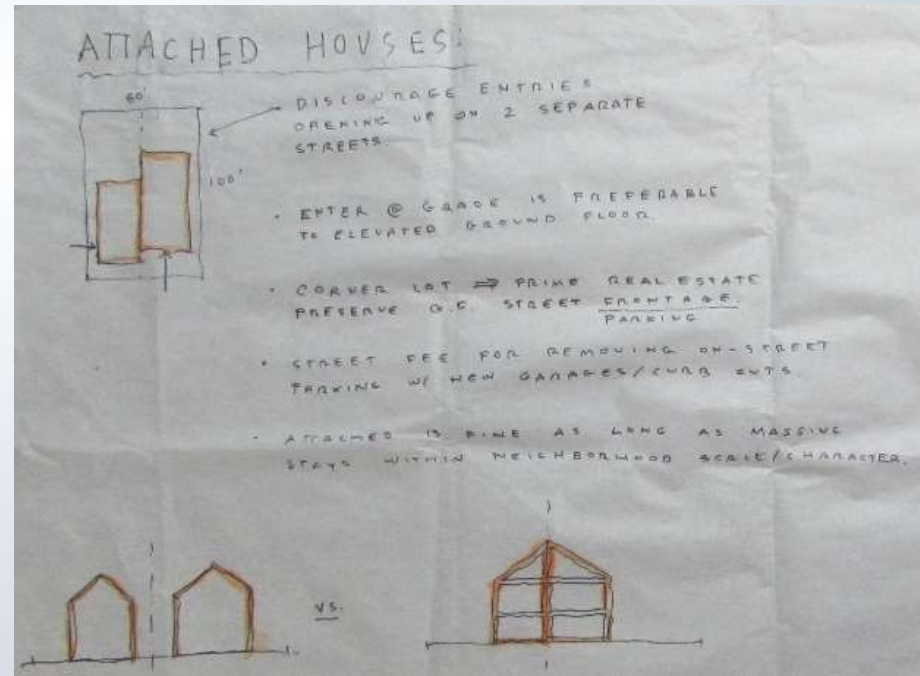 ATTACHED HOUSES:
60'
100'
DISCOURAGE ENTRIES
OPENING UP ON 2 SEPARATE
STREETS.
· ENTER @ GRADE IS PREFERABLE
TO ELEVATED GROUND FLOOR.
· CORNER LOT ⇒ PRIME REAL ESTATE
PRESERVE STREET FRONTAGE.
PARKING
· STREET FEE FOR REMOVING ON-STREET
PARKING W/ NEW GARAGES/CURB CUTS.
· ATTACHED IS FINE AS LONG AS MASSING
STAYS WITHIN NEIGHBORHOOD SCALE/CHARACTER.
VS.